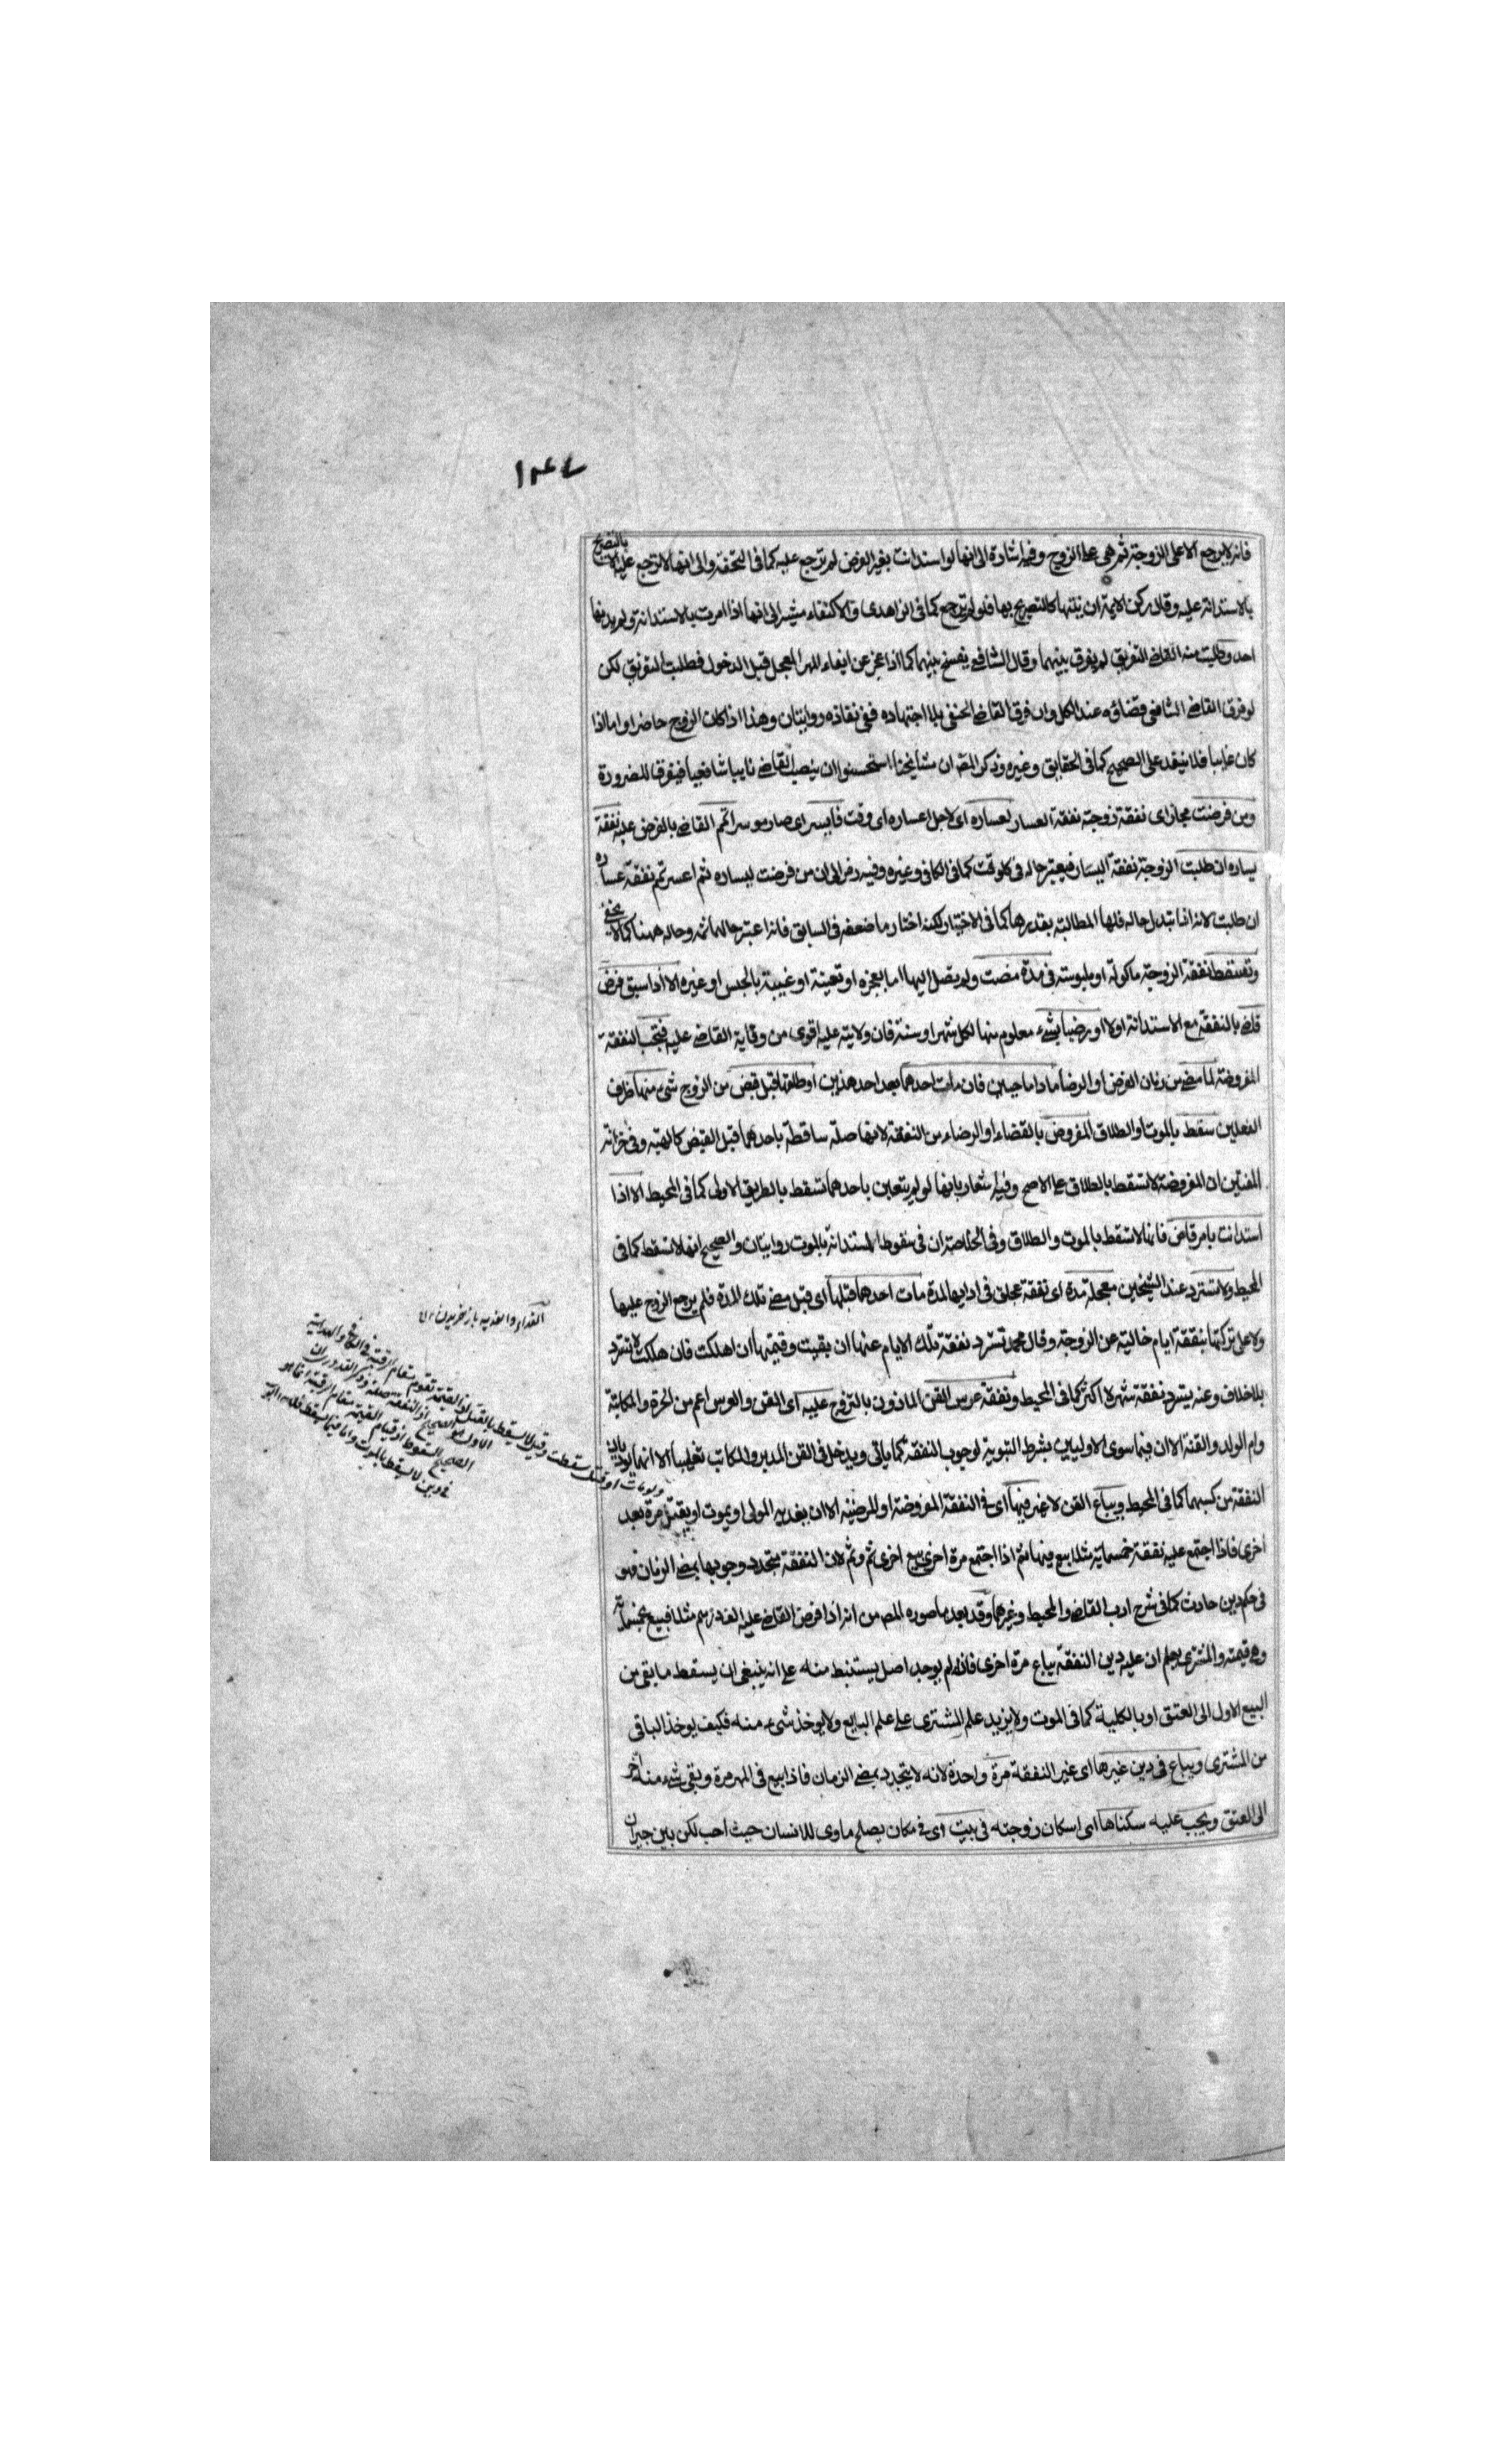 ١٣٤٧
فانه لا يرجع الا على الزوجة ثم هى على الزوج وفيه اشارة الى انها لو استدانت بغير الفرض لم ترجع عليه كما فى التحفة والى انها لا ترجع عليه الا بالتصريح
بالاستدانة عليه وقال ركن الايمة ان نيتها كالتصريح بها فلو لم ترجع كما فى الزاهدى والاكتفاء مشير الى انها اذا امرت بالاستدانة ولم يدنها
احد وطلبت منه القاضى التفريق لم يفرق بينهما وقال الشافعى يفسخ بينهما كما اذا عجز عن ايفاء المهر المعجل قبل الدخول فطلبت التفريق لكن
لو فرق القاضى الشافعى فقضاؤه عند الكل وان فرق القاضى الحنفى بلا اجتهاده ففى نفاذه روايتان وهذا اذا كان الزوج حاضرا واما اذا
كان غايبا فلا ينفذ على الصحيح كما فى الحقايق وغيره وذكر المص ان مشايخنا استحسنوا ان ينصب القاضى نايبا شافعيا فيفرق للضرورة
ومن فرضت مجاز اى نفقة زوجته نفقة العسار لعساره اى لاجل اعساره اى وقت فايسر اى صار موسرا تمم القاضى بالفرض عليه نفقة
يساره ان طلبت الزوجة نفقة اليسار فيعتبر حاله فى كل وقت كما فى الكافى وغيره وفيه رمز الى ان من فرضت ليساره ثم اعسر تمم نفقة عساره
ان طلبت لانه اذا تبدل حاله فلها المطالبة بقدرها كما فى الاختيار لكنه اختار ما ضعفه فى السابق فانه اعتبر حالهما ثمه وحاله ههنا كما لا يخفى
وتسقط نفقة الزوجة ماكولة او ملبوسة فى مدة مضت ولم يصل اليها اما بعجزه او تعينة او غيبية بالحبس او غيره الا اذا سبق فرض
قاض بالنفقة مع الاستدانة اولا او رضيا بشىء معلوم منها لكل شهر او سنة فان ولايته عليه اقوى من ولاية القاضى عليه فتجب النفقة
المفروضة لما مضى من زمان الفرض او الرضا ما داما حيين فان مات احدهما بعد احد هذين او طلقها قبل قبض من الزوج شىء منها ظرف
الفعلين سقط بالموت او الطلاق المفروض بالقضاء او الرضاء من النفقة لانها صلة ساقطة باحدهما قبل القبض كالهبة وفى خزانة
المفتين ان المفروضة لا تسقط بالطلاق على الاصح وفيه اشعار بانها لو لم يتعين باحدهما تسقط بالطريق الاولى كما فى المحيط الا اذا
استدانت بامر قاض فانها لا تسقط بالموت والطلاق وفى الخلاصة ان فى سقوط المستدانة بالموت روايتان والصحيح انها لا تسقط كما فى
المحيط ولا تسترد عند الشيخين معجلة مدة اى نفقة عجلت فى ادايها لمدة مات احدهما قبلها اى قبل مضى تلك المدة فلم يرجع الزوج عليها
ولا على تركتها بنفقة ايام خالية عن الزوجة وقال محمد تسترد نفقة تلك الايام عنها ان بقيت وقيمتها ان اهلكت فان هلكت لا تسترد
بلا خلاف وعنه يسترد نفقة شهر لا اكثر كما فى المحيط ونفقة عرس القن الماذون بالتزوج عليه اى القن والعرس اعم من الحرة والمكاتبة
وام الولد والقنة الا ان فيما سوى الاوليين بشرط التبوية لوجوب النفقة كما ياتى ويدخل فى القن المدبر والمكاتب تغليبا الا انهما يوديان
النفقة من كسبهما كما فى المحيط ويباع القن لا غير فيها اى فى النفقة المفروضة او المرضية الا ان يفديه المولى او يموت او يقتل مرة بعد
اخرى فاذا اجتمع عليه نفقة خمسماية مثلا بيع فيها ثم اذا اجتمع مرة اخرى بيع اخرى ثم وثم لان النفقة يتجدد وجوبها بمضى الزمان فهو
فى حكم دين حادث كما فى شرح ادب القاضى والمحيط وغيرهما وقد بعد ما صوره المص من انه اذا فرض القاضى عليه الف درهم مثلا فبيع بخمسماية
وهى قيمته والمشترى يعلم ان عليه دين النفقة يباع مرة اخرى فانه لم يوجد اصل يستنبط منه على انه ينبغى ان يسقط ما بقى من
البيع الاول الى العتق او بالكلية كما فى الموت ولا يزيد علم المشترى على علم البايع ولا يوخذ شىء منه فكيف يوخذ الباقى
من المشترى ويباع فى دين غيرها اى غير النفقة مرة واحدة لانه لا يتجدد بمضى الزمان فاذا بيع فى المهر مرة وبقى شىء منه اخر
الى العتق ويجب عليه سكناها اى اسكان زوجته فى بيت اى فى مكان يصلح ماوى للانسان حيث احب لكن بين جيران
الفداء والفدية باز خريدن
ولو مات او قتل سقطت وقيل لا يسقط بالقتل لان القيمة تقوم مقام الرقبة
الاول هو الصحيح اذ النفقة صلة وذكر القدورى ان
الصحيح السقوط اذ قيام القيمة مقام الرقبة انما هو
فى دين لا يسقط بالموت واما فيما يسقط فلا